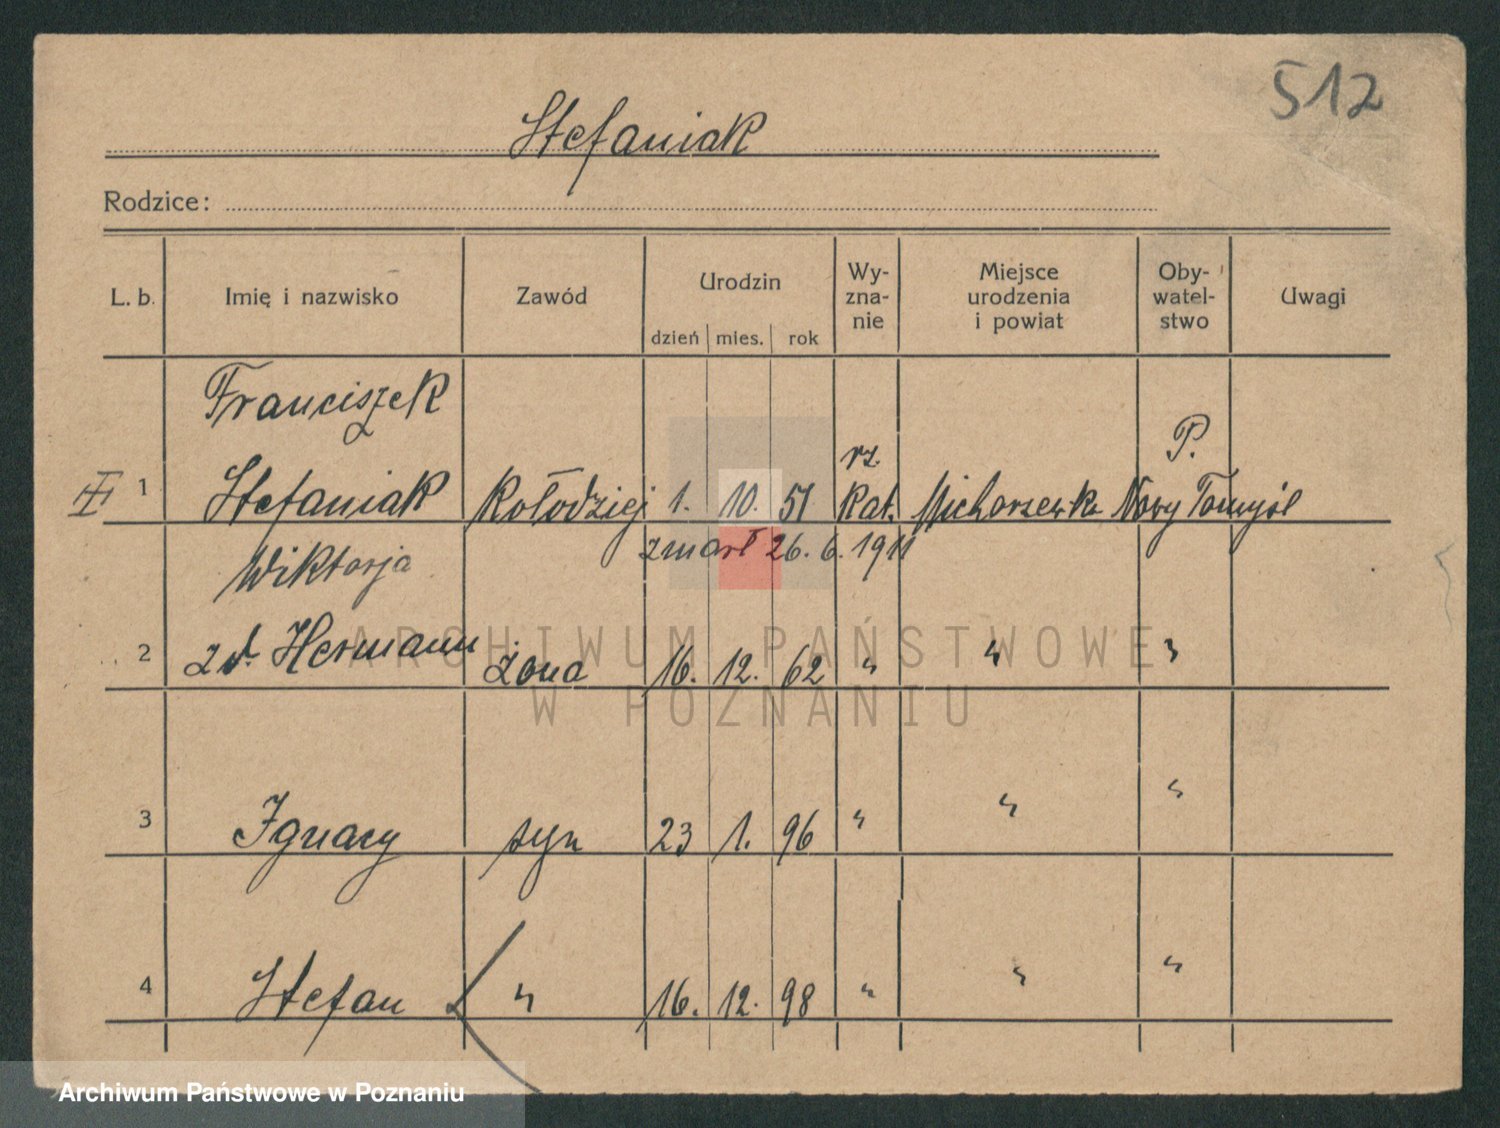 512
Stefaniak
Rodzice:
L. b. Imię i nazwisko Zawód Urodzin dzień mies. rok Wy-zna-nie Miejsce urodzenia i powiat Oby-watel-stwo Uwagi
Franciszek
1 Stefaniak Kołodziej 1. 10. 51 rz. Kat. Michorzewko Nowy Tomyśl P.
zmarł 26. 6. 1911
Wiktorja
2 zd. Hermann żona 16. 12. 62 " " "
3 Ignacy syn 23 1. 96 " " "
4 Stefan " 16. 12. 98 " " "
ARCHIWUM PAŃSTWOWE
W POZNANIU
Archiwum Państwowe w Poznaniu